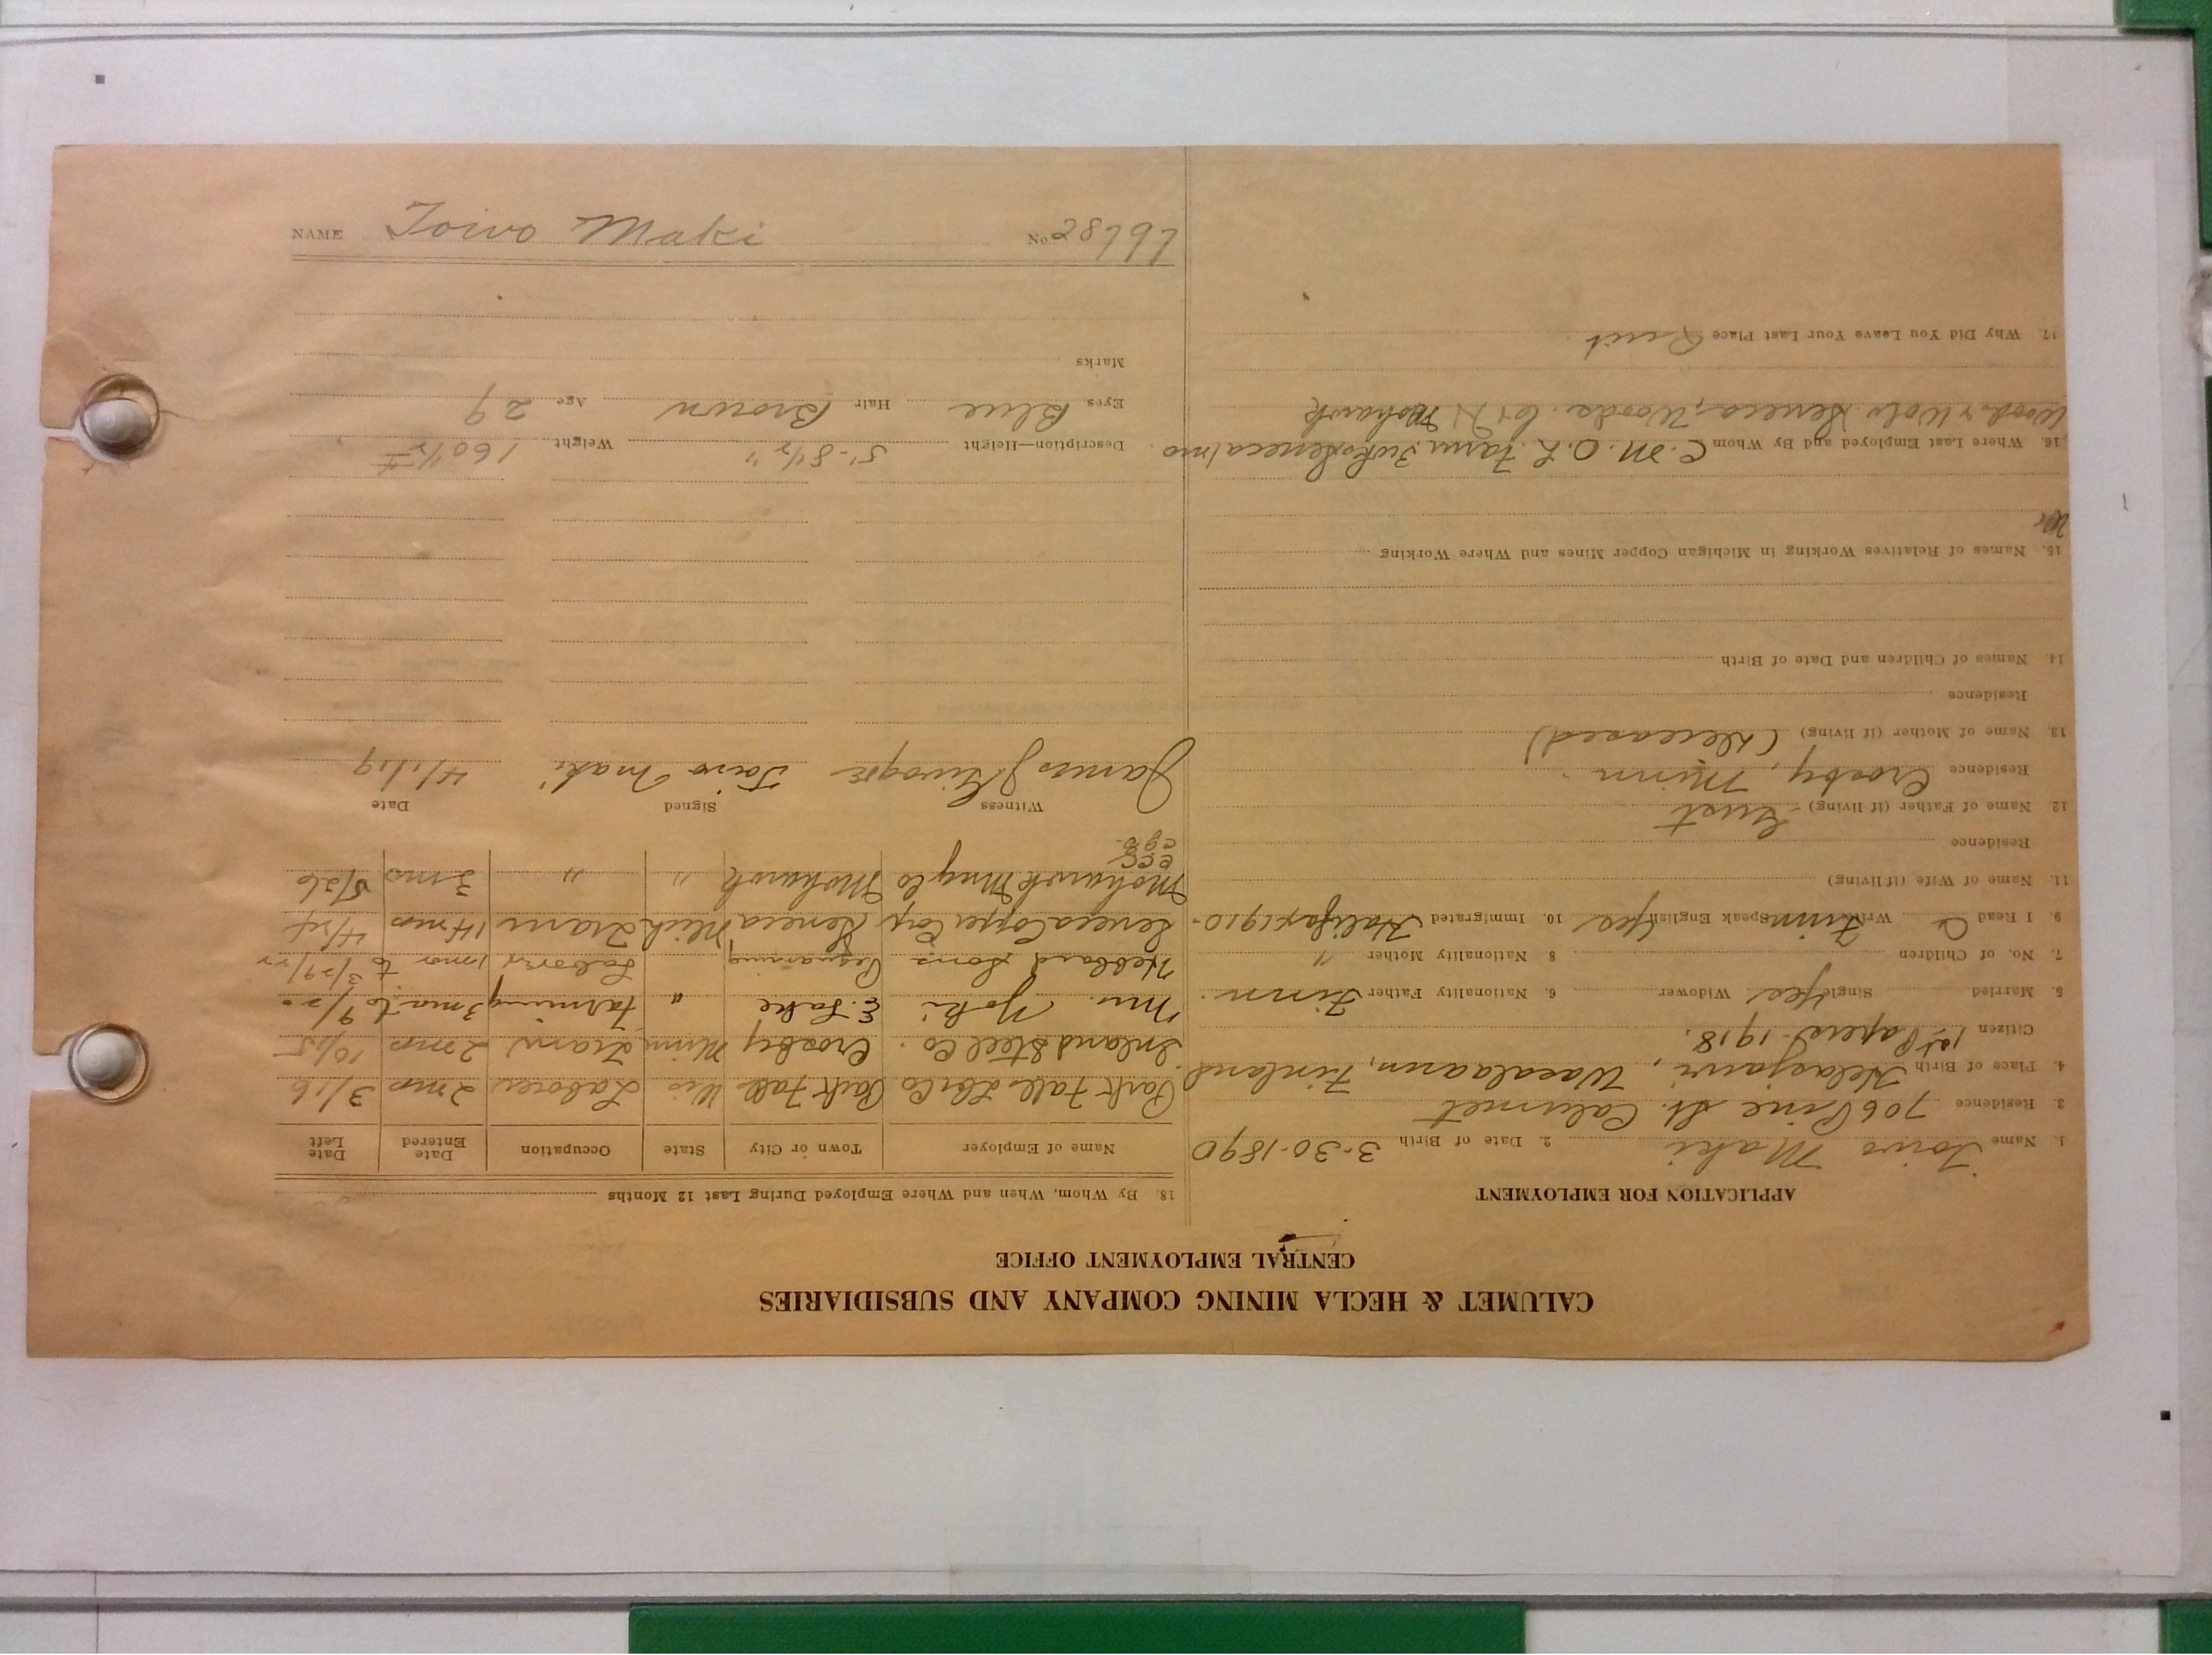 CALUMET & HECLA MINING COMPANY AND SUBSIDIARIES
CENTRAL EMPLOYMENT OFFICE
APPLICATION FOR EMPLOYMENT
1. Name Toivo Maki 2. Date of Birth 3-30-1890
3. Residence 706 Pine St. Calumet
4. Place of Birth Waasalaann, Finland
Citizen 1st Papers 1918.
5. Married Single Yes Widower 6. Nationality Father Finn
7. No. of Children 8 Nationality Mother "
9. I Read Write Finn Speak English Yes 10. Immigrated Halifax 1910-
11. Name of Wife (if living)
Residence
12. Name of Father (if living) Gust
Residence Crosby, Minn
13. Name of Mother (if living) (Deceased)
Residence
14. Names of Children and Date of Birth
15. Names of Relatives Working in Michigan Copper Mines and Where Working
16. Where Last Employed and By Whom C.M. O.L. Farm Seneca 1 mo
Seneca, Woods Mohawk
17. Why Did You Leave Your Last Place Quit
18. By Whom, When and Where Employed During Last 12 Months
Name of Employer Town or City State Occupation Date Entered Date Left
Park Falls Lbr Co Park Falls Wis Laborer 2 mos 3/16
Inland Steel Co. Crosby Minn Tram 2 mos 10/15
Mr. Joki E. Lake " Farming 3 mo. to 9/20
Hebbard Sons Pequaming Laborer 1 mo to 3/29/22
Seneca Copper Corp Seneca Mich Tram 14 mos 4/24
Mohawk Mng Co Mohawk " " 3 mos 5/26
Witness Signed Date
James Toivo Maki 4/1/19
Description—Height 5'-8 1/2" Weight 160 1/2 #
Eyes Blue Hair Brown Age 29
Marks
NAME Toivo Maki No. 28797